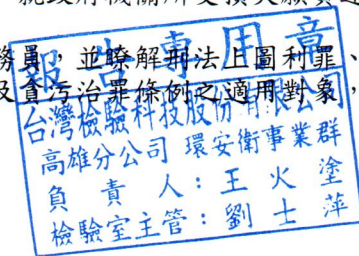 務員，並瞭解刑法上圖利罪、
及貪污治罪條例之適用對象，
報告專用章
台灣檢驗科技股份有限公司
高雄分公司 環安衛事業群
負責人：王火塗
檢驗室主管：劉士萍